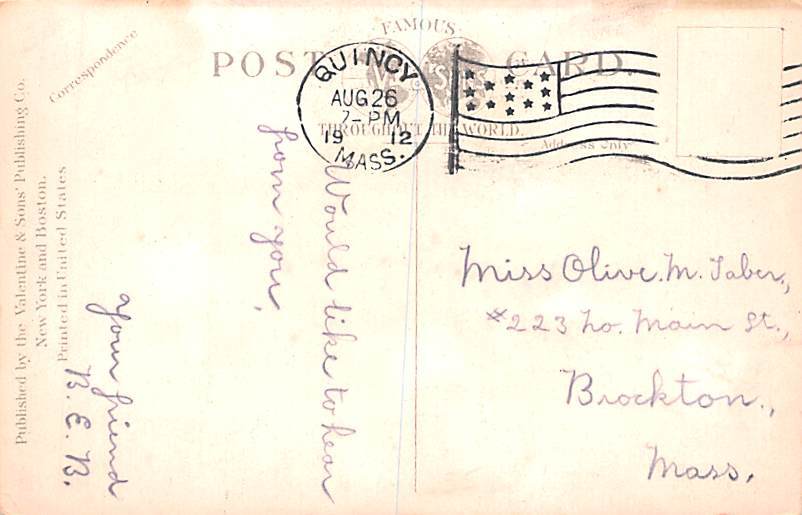 FAMOUS
POST CARD.
THROUGHOUT THE WORLD.
Correspondence
Address only
QUINCY
AUG 26
7-PM
19 12
MASS.
Published by the Valentine & Sons' Publishing Co.
New York and Boston.
Printed in United States
Would like to hear
from you,
your friend
B. E. B.
Miss Olive. M. Taber.,
#223 No. Main St.,
Brockton.,
Mass.